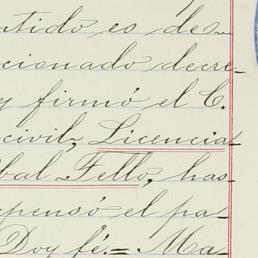 ntido es de
cionado decre-
y firmó el C.
civil, Licencia-
bal Tello, has-
pensó el pa-
Doy fé.= Ma-